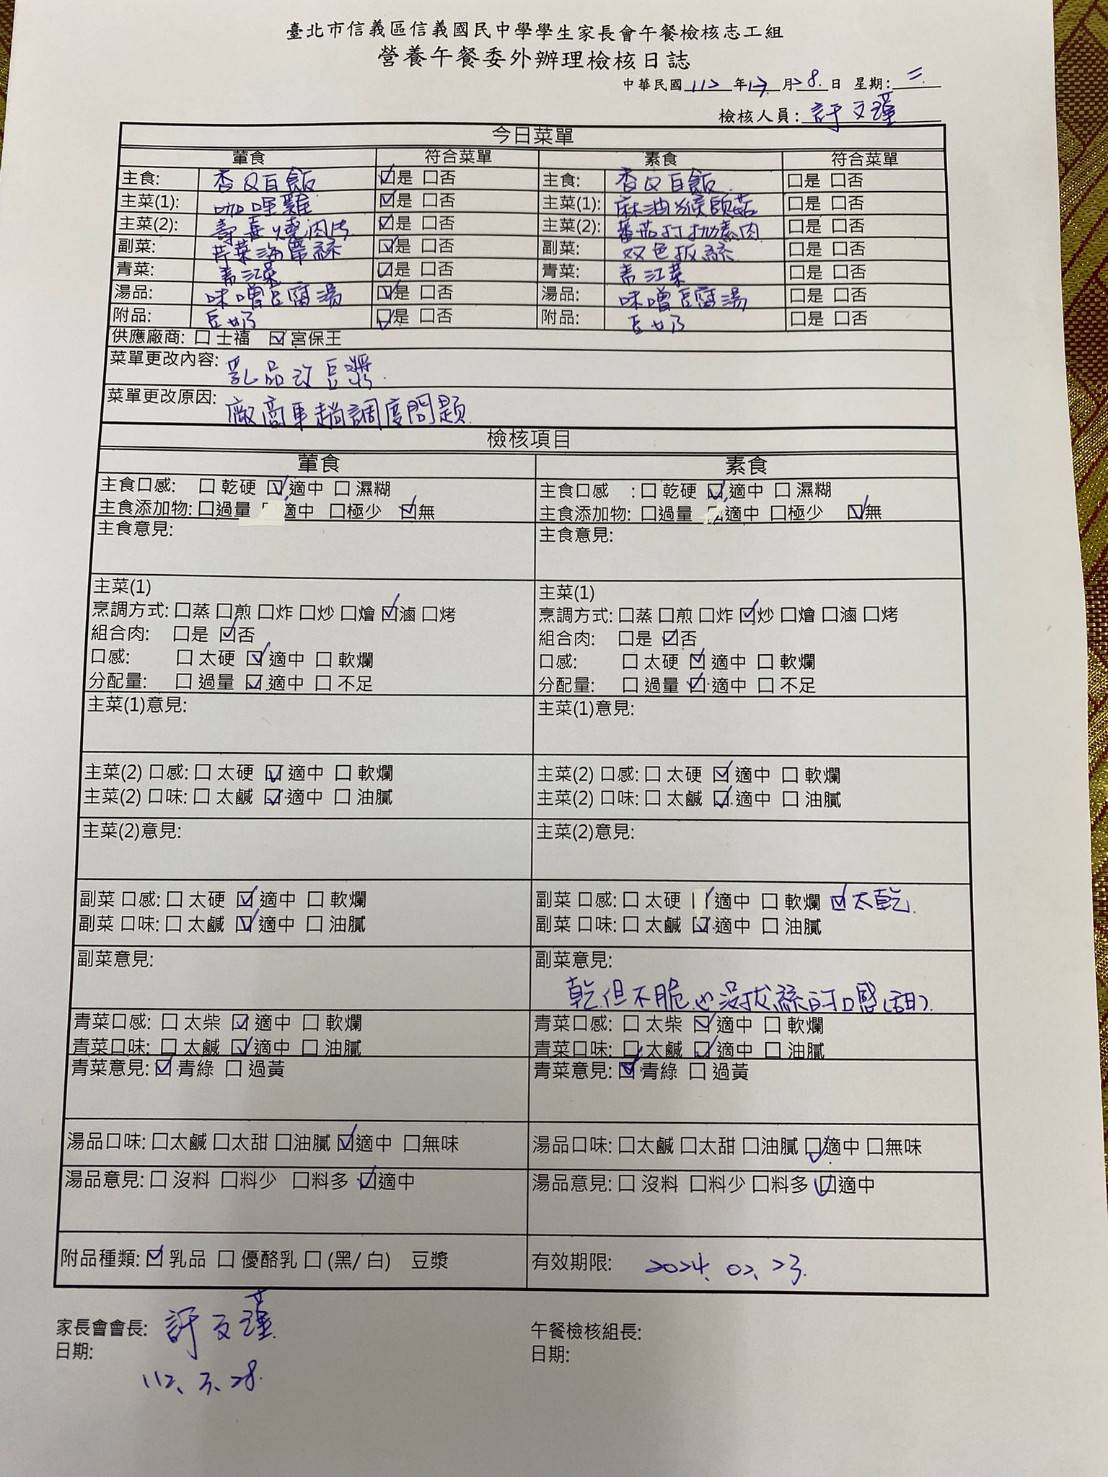 臺北市信義區信義國民中學學生家長會午餐檢核志工組
營養午餐委外辦理檢核日誌
中華民國 112 年 月 28 日 星期: 三
檢核人員:
今日菜單
葷食 符合菜單 素食 符合菜單
主食: 香Q白飯 ☑是 口否 主食: 香Q白飯 口是 口否
主菜(1): 咖哩雞 ☑是 口否 主菜(1): 麻油猴頭菇 口是 口否
主菜(2): 壽喜燒肉片 ☑是 口否 主菜(2): 蕃茄打拋素肉 口是 口否
副菜: 芹菜海帶絲 ☑是 口否 副菜: 双色拔絲 口是 口否
青菜: 青江菜 ☑是 口否 青菜: 青江菜 口是 口否
湯品: 味噌豆腐湯 ☑是 口否 湯品: 味噌豆腐湯 口是 口否
附品: 豆奶 ☑是 口否 附品: 豆奶 口是 口否
供應廠商: 口 士福 ☑ 宮保王
菜單更改內容: 乳品改豆漿.
菜單更改原因: 廠商車趟調度問題.
檢核項目
葷食 素食
主食口感: 口 乾硬 ☑適中 口 濕糊 主食口感 :口 乾硬 ☑適中 口 濕糊
主食添加物: 口過量 適中 口極少 ☑無 主食添加物: 口過量 適中 口極少 ☑無
主食意見: 主食意見:
主菜(1) 主菜(1)
烹調方式: 口蒸 口煎 口炸 口炒 口燴 ☑滷 口烤 烹調方式: 口蒸 口煎 口炸 ☑炒 口燴 口滷 口烤
組合肉: 口是 ☑否 組合肉: 口是 ☑否
口感: 口 太硬 ☑ 適中 口 軟爛 口感: 口 太硬 ☑ 適中 口 軟爛
分配量: 口 過量 ☑ 適中 口 不足 分配量: 口 過量 ☑ 適中 口 不足
主菜(1)意見: 主菜(1)意見:
主菜(2) 口感: 口 太硬 ☑ 適中 口 軟爛 主菜(2) 口感: 口 太硬 ☑ 適中 口 軟爛
主菜(2) 口味: 口 太鹹 ☑ 適中 口 油膩 主菜(2) 口味: 口 太鹹 ☑ 適中 口 油膩
主菜(2)意見: 主菜(2)意見:
副菜 口感: 口 太硬 ☑ 適中 口 軟爛 副菜 口感: 口 太硬 適中 口 軟爛 ☑太乾.
副菜 口味: 口 太鹹 ☑ 適中 口 油膩 副菜 口味: 口 太鹹 ☑ 適中 口 油膩
副菜意見: 副菜意見:
乾但不脆也沒拔絲的口感(甜).
青菜口感: 口 太柴 ☑ 適中 口 軟爛 青菜口感: 口 太柴 ☑ 適中 口 軟爛
青菜口味: 口 太鹹 ☑ 適中 口 油膩 青菜口味: 口 太鹹 ☑ 適中 口 油膩
青菜意見: ☑ 青綠 口 過黃 青菜意見: ☑ 青綠 口 過黃
湯品口味: 口太鹹 口太甜 口油膩 ☑適中 口無味 湯品口味: 口太鹹 口太甜 口油膩 ☑適中 口無味
湯品意見: 口 沒料 口料少 口料多 ☑適中 湯品意見: 口 沒料 口料少 口料多 ☑適中
附品種類: ☑ 乳品 口 優酪乳 口 (黑/ 白) 豆漿 有效期限: 2024.02.23.
家長會會長: 午餐檢核組長:
日期: 日期: